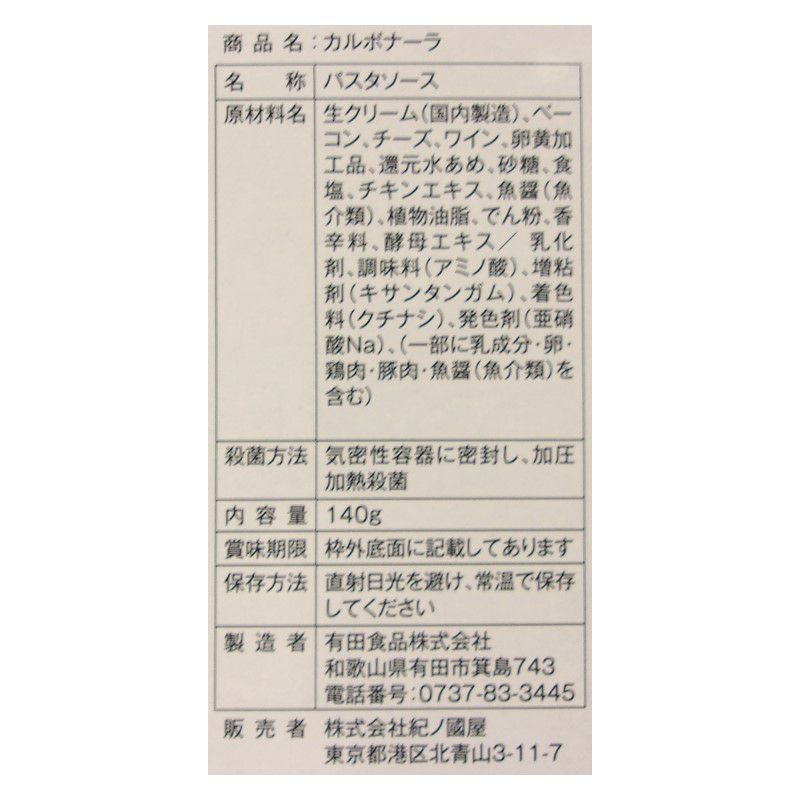 商品名：カルボナーラ
名称 パスタソース
原材料名 生クリーム（国内製造）、ベー
コン、チーズ、ワイン、卵黄加
工品、還元水あめ、砂糖、食
塩、チキンエキス、魚醤（魚
介類）、植物油脂、でん粉、香
辛料、酵母エキス／ 乳化
剤、調味料（アミノ酸）、増粘
剤（キサンタンガム）、着色
料（クチナシ）、発色剤（亜硝
酸Na）、（一部に乳成分・卵・
鶏肉・豚肉・魚醤（魚介類）を
含む）
殺菌方法 気密性容器に密封し、加圧
加熱殺菌
内容量 140g
賞味期限 枠外底面に記載してあります
保存方法 直射日光を避け、常温で保存
してください
製造者 有田食品株式会社
和歌山県有田市箕島743
電話番号：0737-83-3445
販売者 株式会社紀ノ國屋
東京都港区北青山3-11-7